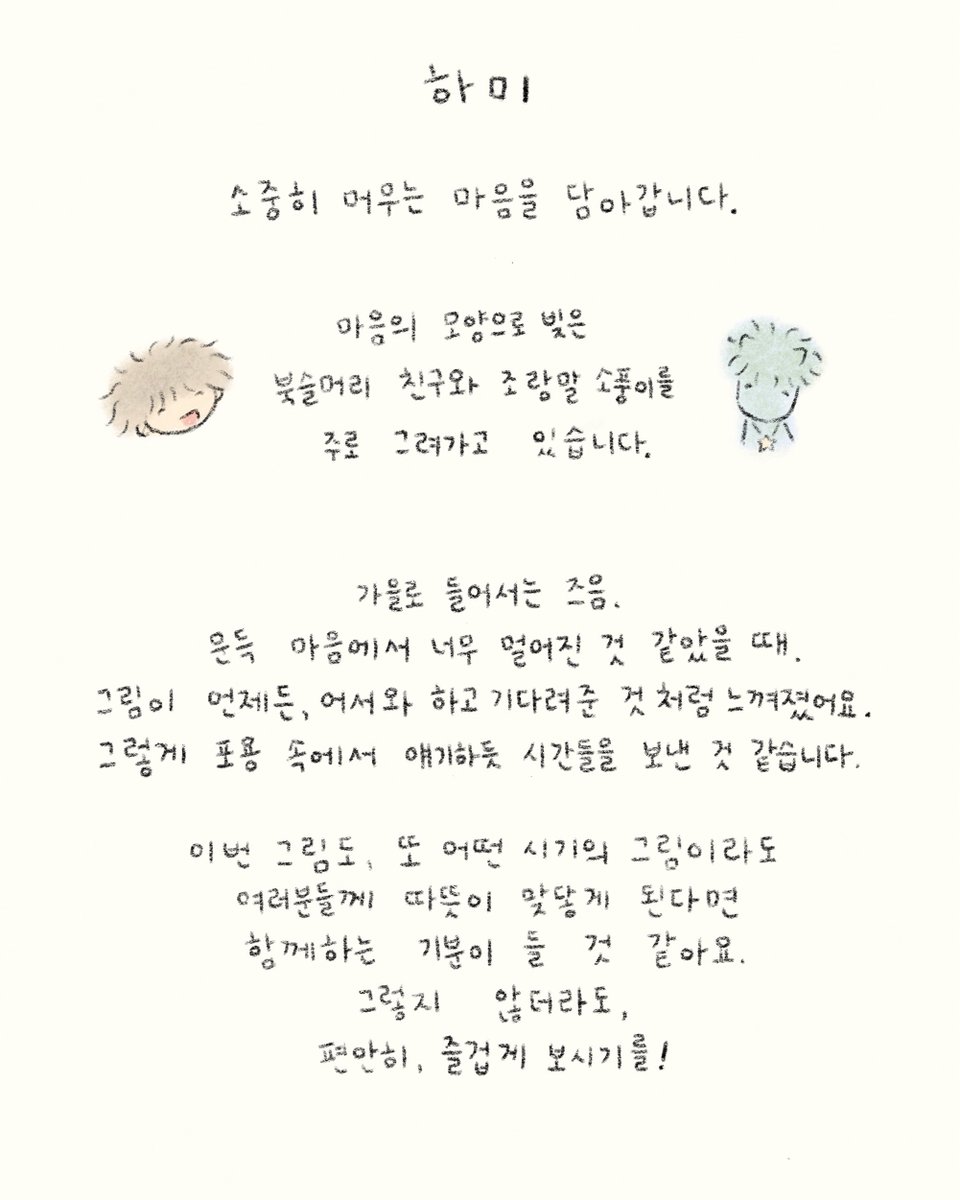 하미
소중히 머무는 마음을 담아갑니다.
마음의 모양으로 빚은
북슬머리 친구와 조랑말 소풍이를
주로 그려가고 있습니다.
가을로 들어서는 즈음.
문득 마음에서 너무 멀어진 것 같았을 때.
그림이 언제든, 어서와 하고 기다려준 것처럼 느껴졌어요.
그렇게 포옹 속에서 얘기하듯 시간들을 보낸 것 같습니다.
이번 그림도, 또 어떤 시기의 그림이라도
여러분들께 따뜻이 맞닿게 된다면
함께하는 기분이 들 것 같아요.
그렇지 않더라도,
편안히, 즐겁게 보시기를!